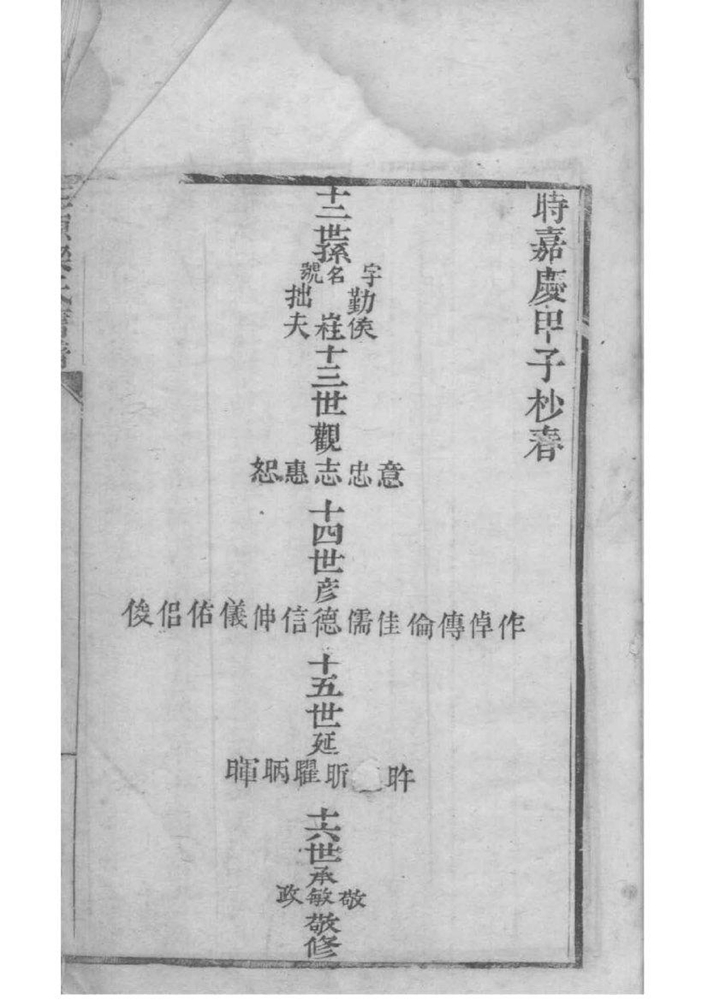 時嘉慶甲子杪春
十二世孫
字勤侯
名崧
號拙夫
十三世觀
意忠志惠恕
十四世彥
作倬傳倫佳儒德信伸儀佑侶俊
十五世延
昨 昕曜昞暉
十六世承
敬敏政
敬修